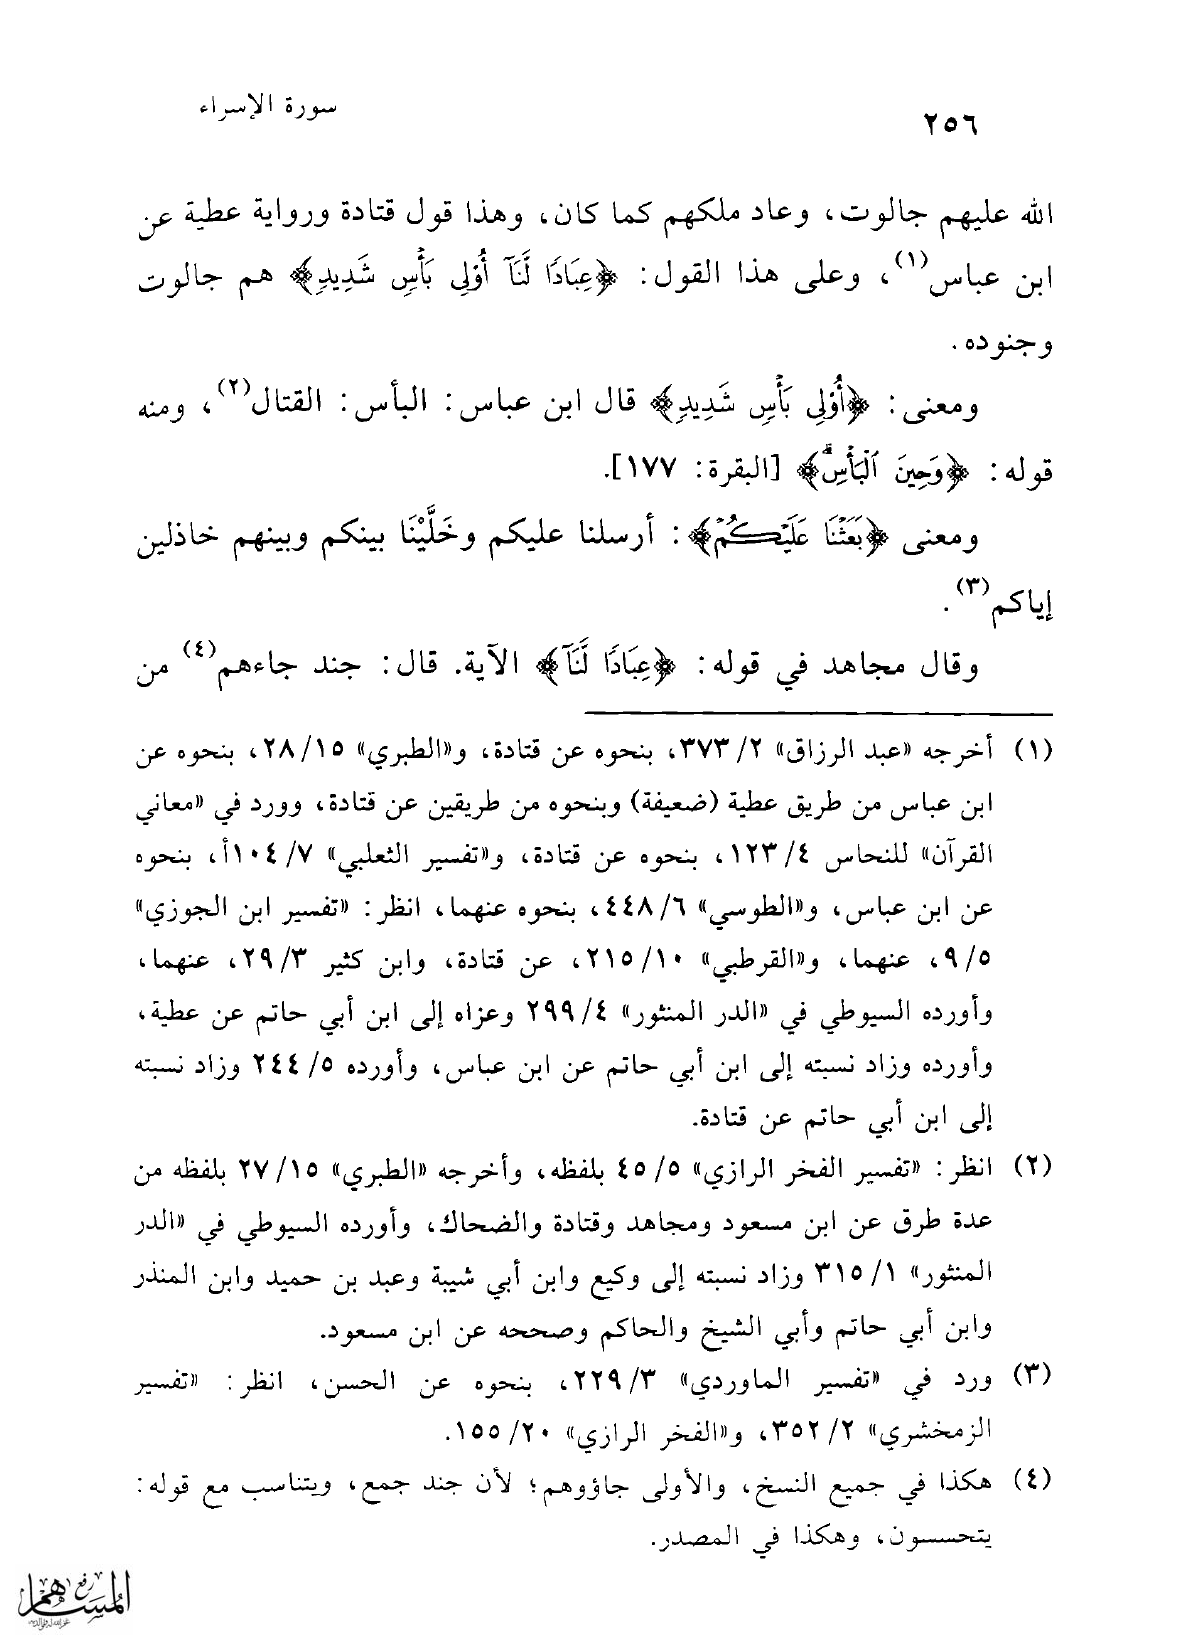 سورة الإسراء
٢٥٦
الله عليهم جالوت، وعاد ملكهم كما كان، وهذا قول قتادة ورواية عطية عن
ابن عباس(١)، وعلى هذا القول: ﴿عِبَادًا لَّنَآ أُوْلِي بَأْسٍ شَدِيدٍ﴾ هم جالوت
وجنوده.
ومعنى: ﴿أُوْلِي بَأْسٍ شَدِيدٍ﴾ قال ابن عباس: البأس: القتال(٢)، ومنه
قوله: ﴿وَحِينَ الْبَأْسِۗ﴾ [البقرة: ١٧٧].
ومعنى ﴿بَعَثْنَا عَلَيْكُمْ﴾: أرسلنا عليكم وخَلَّيْنَا بينكم وبينهم خاذلين
إياكم(٣).
وقال مجاهد في قوله: ﴿عِبَادًا لَّنَآ﴾ الآية. قال: جند جاءهم(٤) من
(١) أخرجه «عبد الرزاق» ٢/ ٣٧٣، بنحوه عن قتادة، و«الطبري» ١٥/ ٢٨، بنحوه عن
ابن عباس من طريق عطية (ضعيفة) وبنحوه من طريقين عن قتادة، وورد في «معاني
القرآن» للنحاس ٤/ ١٢٣، بنحوه عن قتادة، و«تفسير الثعلبي» ٧/ ١٠٤أ، بنحوه
عن ابن عباس، و«الطوسي» ٦/ ٤٤٨، بنحوه عنهما، انظر: «تفسير ابن الجوزي»
٥/ ٩، عنهما، و«القرطبي» ١٠/ ٢١٥، عن قتادة، وابن كثير ٣/ ٢٩، عنهما،
وأورده السيوطي في «الدر المنثور» ٤/ ٢٩٩ وعزاه إلى ابن أبي حاتم عن عطية،
وأورده وزاد نسبته إلى ابن أبي حاتم عن ابن عباس، وأورده ٥/ ٢٤٤ وزاد نسبته
إلى ابن أبي حاتم عن قتادة.
(٢) انظر: «تفسير الفخر الرازي» ٥/ ٤٥ بلفظه، وأخرجه «الطبري» ١٥/ ٢٧ بلفظه من
عدة طرق عن ابن مسعود ومجاهد وقتادة والضحاك، وأورده السيوطي في «الدر
المنثور» ١/ ٣١٥ وزاد نسبته إلى وكيع وابن أبي شيبة وعبد بن حميد وابن المنذر
وابن أبي حاتم وأبي الشيخ والحاكم وصححه عن ابن مسعود.
(٣) ورد في «تفسير الماوردي» ٣/ ٢٢٩، بنحوه عن الحسن، انظر: «تفسير
الزمخشري» ٢/ ٣٥٢، و«الفخر الرازي» ٢٠/ ١٥٥.
(٤) هكذا في جميع النسخ، والأولى جاؤوهم؛ لأن جند جمع، ويتناسب مع قوله:
يتحسسون، وهكذا في المصدر.